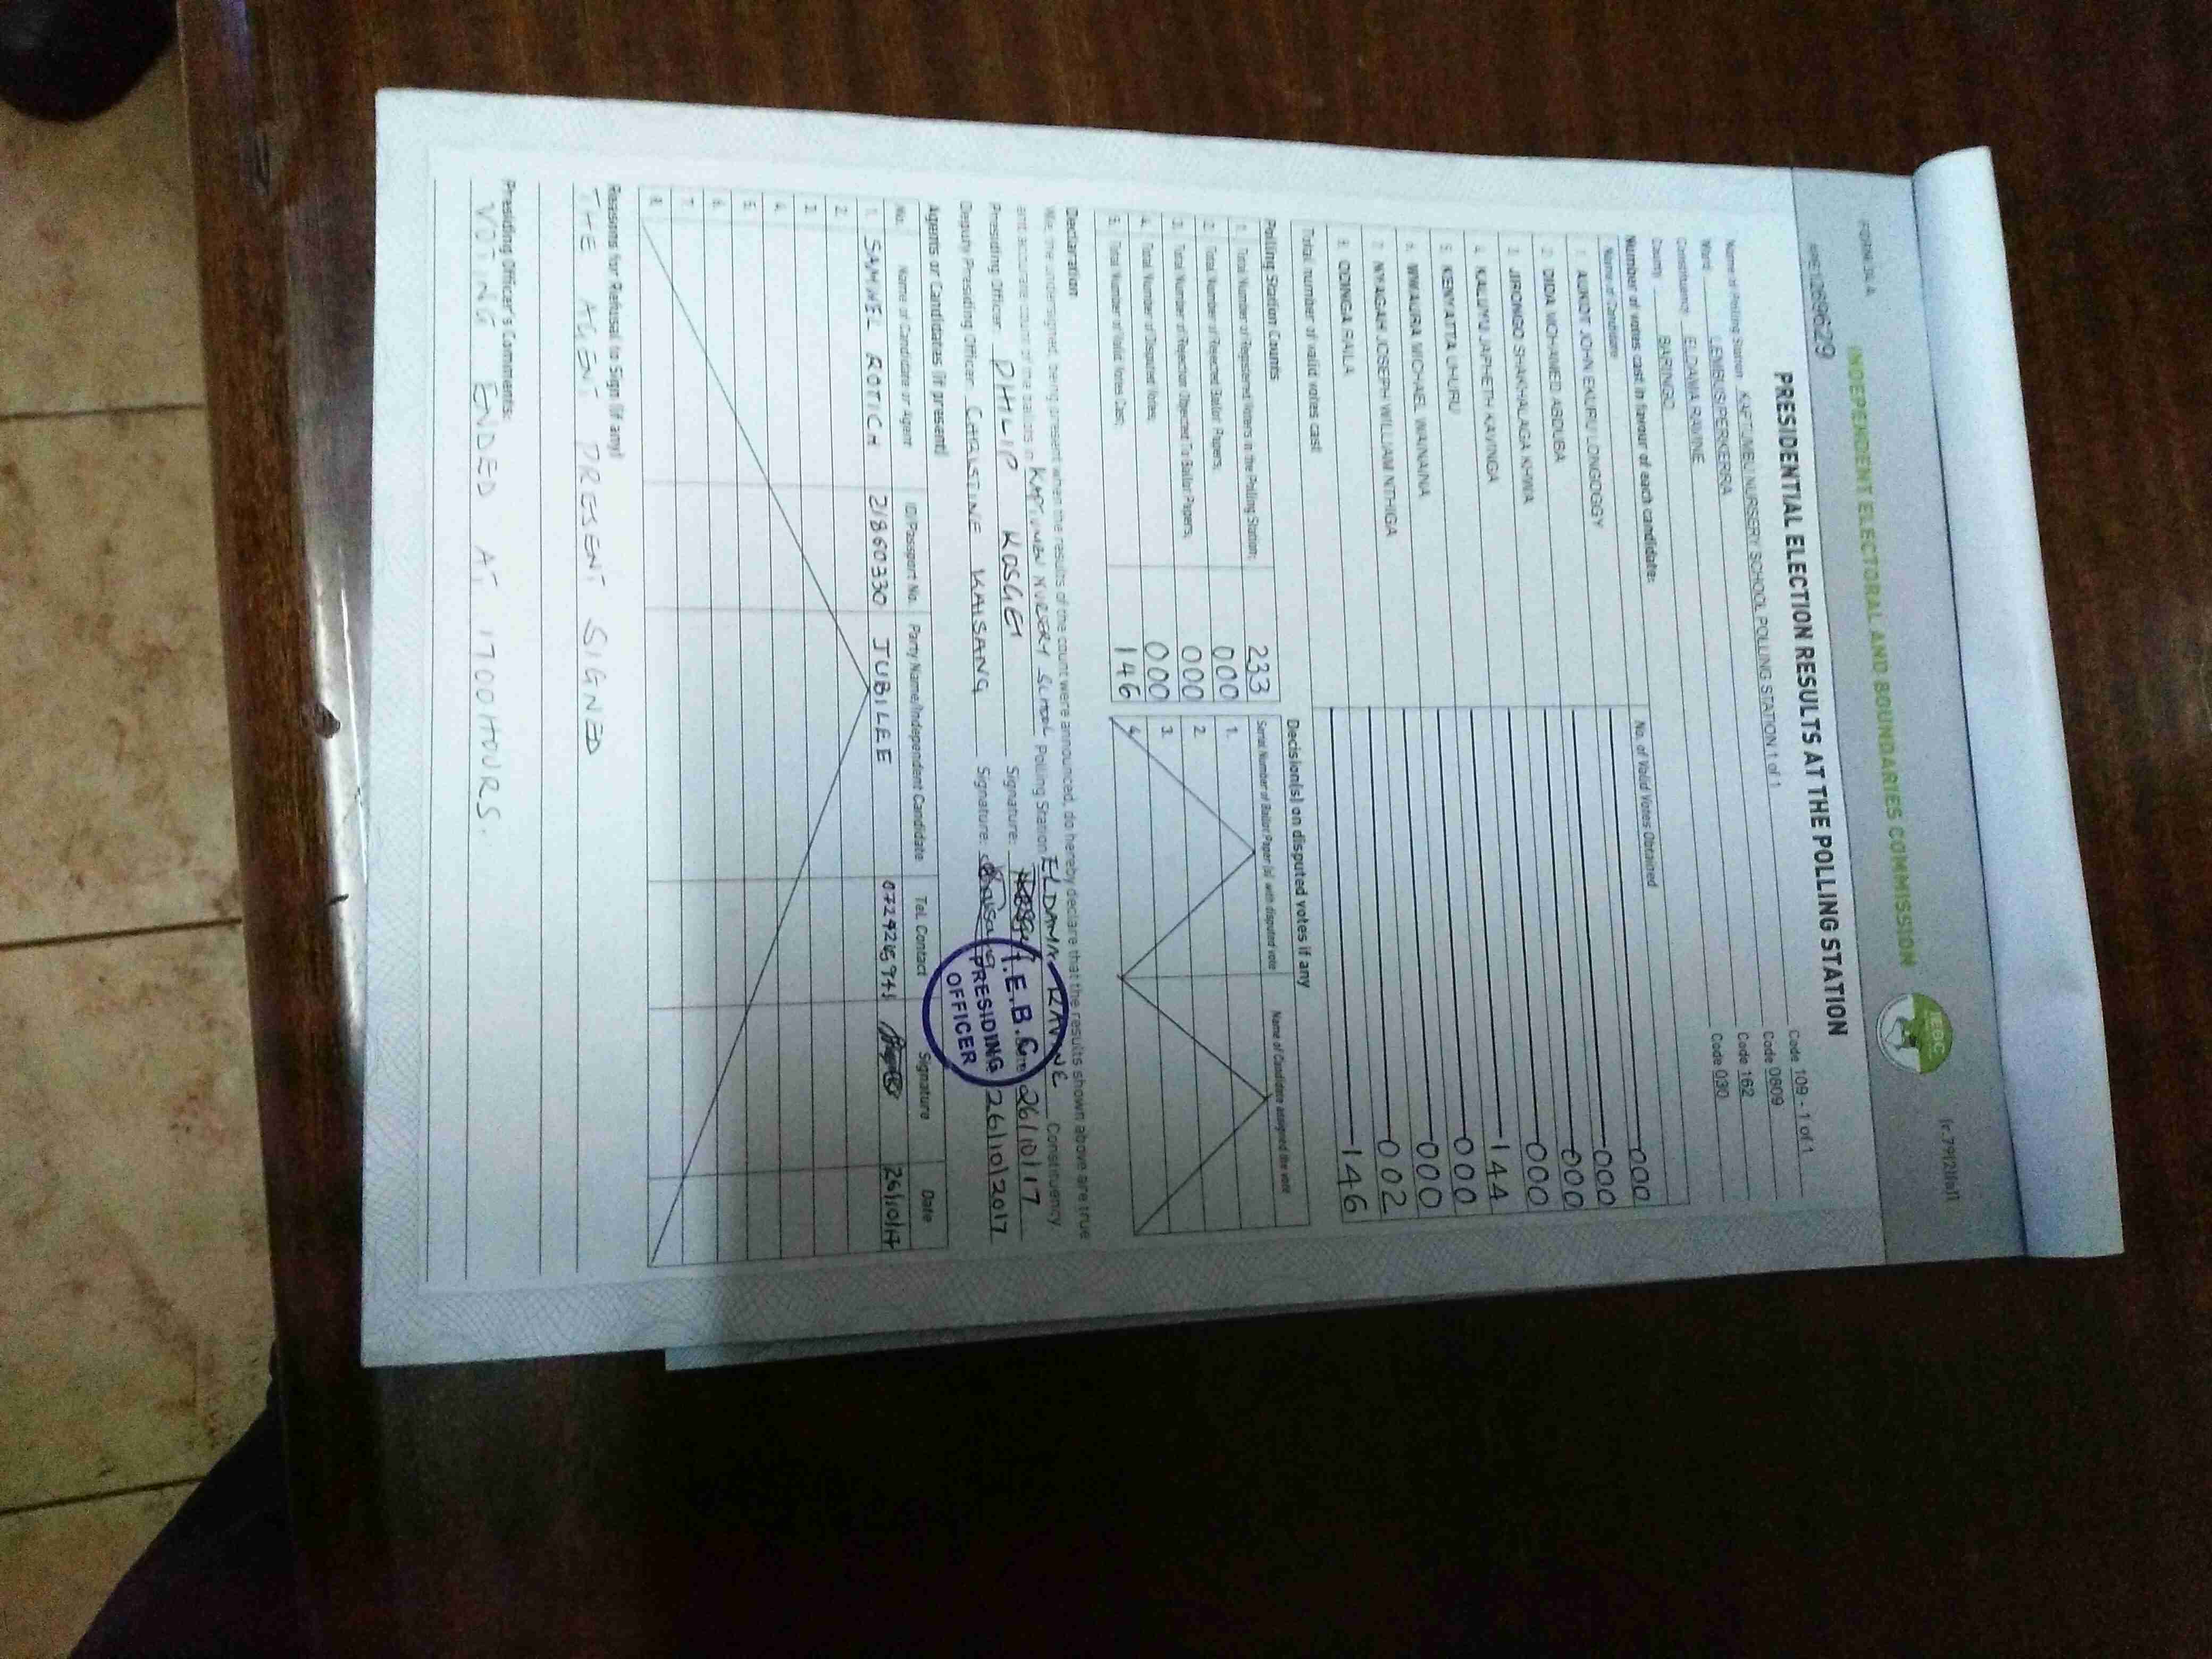 FORM 34 A
r.79(2)(a))
INDEPENDENT ELECTORAL AND BOUNDARIES COMMISSION
IEBC
PRESIDENTIAL ELECTION RESULTS AT THE POLLING STATION
Name of Polling Station NURSERY SCHOOL POLLING STATION 1 of 1 Code 109 - 1 of 1
Ward LEMBUS/PERKERRA Code 0809
Constituency ELDAMA RAVINE Code 162
County BARINGO Code 030
Number of votes cast in favour of each candidate:
Name of Candidate No. of Valid Votes Obtained
1. AUKOT JOHN EKURU LONGOGGY 000
2. DIDA MOHAMED ABDUBA 000
3. JIRONGO SHAKHALAGA KHWA 000
4. KALUYU JAPHETH KAVINGA 000
5. KENYATTA UHURU 144
6. MWAURA MICHAEL WAINAINA 000
7. NYAGAH JOSEPH WILLIAM NTHIGA 000
8. ODINGA RAILA 002
Total number of valid votes cast 146
Polling Station Counts
1. Total Number of Registered Voters in the Polling Station; 233
2. Total Number of Rejected Ballot Papers; 000
3. Total Number of Rejection Objected To Ballot Papers; 000
4. Total Number of Disputed Votes; 000
5. Total Number of Valid Votes Cast; 146
Decision(s) on disputed votes if any
Serial Number of Ballot Paper (s) with disputed vote Name of Candidate assigned the vote
1.
2.
3.
4.
Declaration
We, the undersigned, being present when the results of the count were announced, do hereby declare that the results shown above are true
and accurate count of the ballots in NURSERY SCHOOL Polling Station ELDAMA RAVINE Constituency
Presiding Officer PHILIP KOSGEI Signature: Date 26/10/17
Deputy Presiding Officer CHRISTINE KAISANG Signature: 26/10/2017
I.E.B.C
PRESIDING
OFFICER
Agents or Candidates (if present)
No. Name of Candidate or Agent ID/Passport No. Party Name/Independent Candidate Tel. Contact Signature Date
1. SAMWEL ROTICH 21860330 JUBILEE 26/10/17
2.
3.
4.
5.
6.
7.
8.
Reasons for Refusal to Sign (if any)
THE AGENT PRESENT SIGNED
Presiding Officer's Comments:
VOTING ENDED AT 1700HOURS.